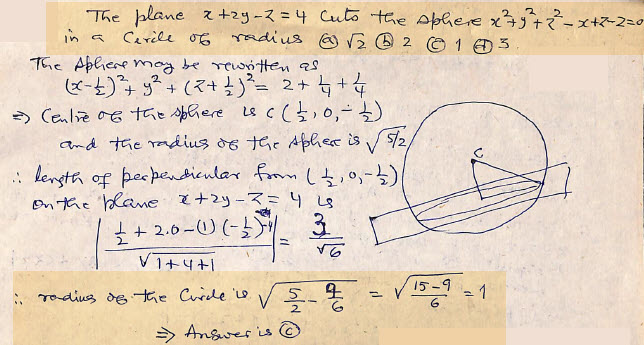 The plane x+2y-z=4 cuts the sphere x²+y²+z²-x+z-2=0
in a Circle of radius (a) √2 (b) 2 (c) 1 (d) 3.
The sphere may be rewritten as
(x-1/2)²+y²+(z+1/2)²= 2+1/4+1/4
⇒ Centre of the sphere is c(1/2, 0, -1/2)
and the radius of the sphere is √5/2
∴ length of perpendicular from (1/2, 0, -1/2)
on the plane x+2y-z=4 is
|(1/2 + 2.0-(1)(-1/2)-4)/√1+4+1| = 3/√6
C
∴ radius of the Circle is √5/2 - 9/6 = √(15-9)/6 = 1
⇒ Answer is (c)